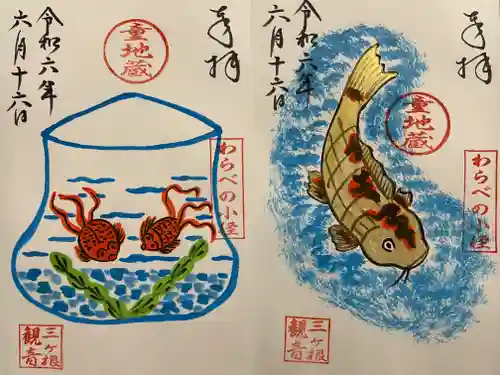 奉拝
令和六年
六月十六日
童地蔵
わらべの小径
三ヶ根
観音
奉拝
令和六年
六月十六日
童地蔵
わらべの小径
三ヶ根
観音